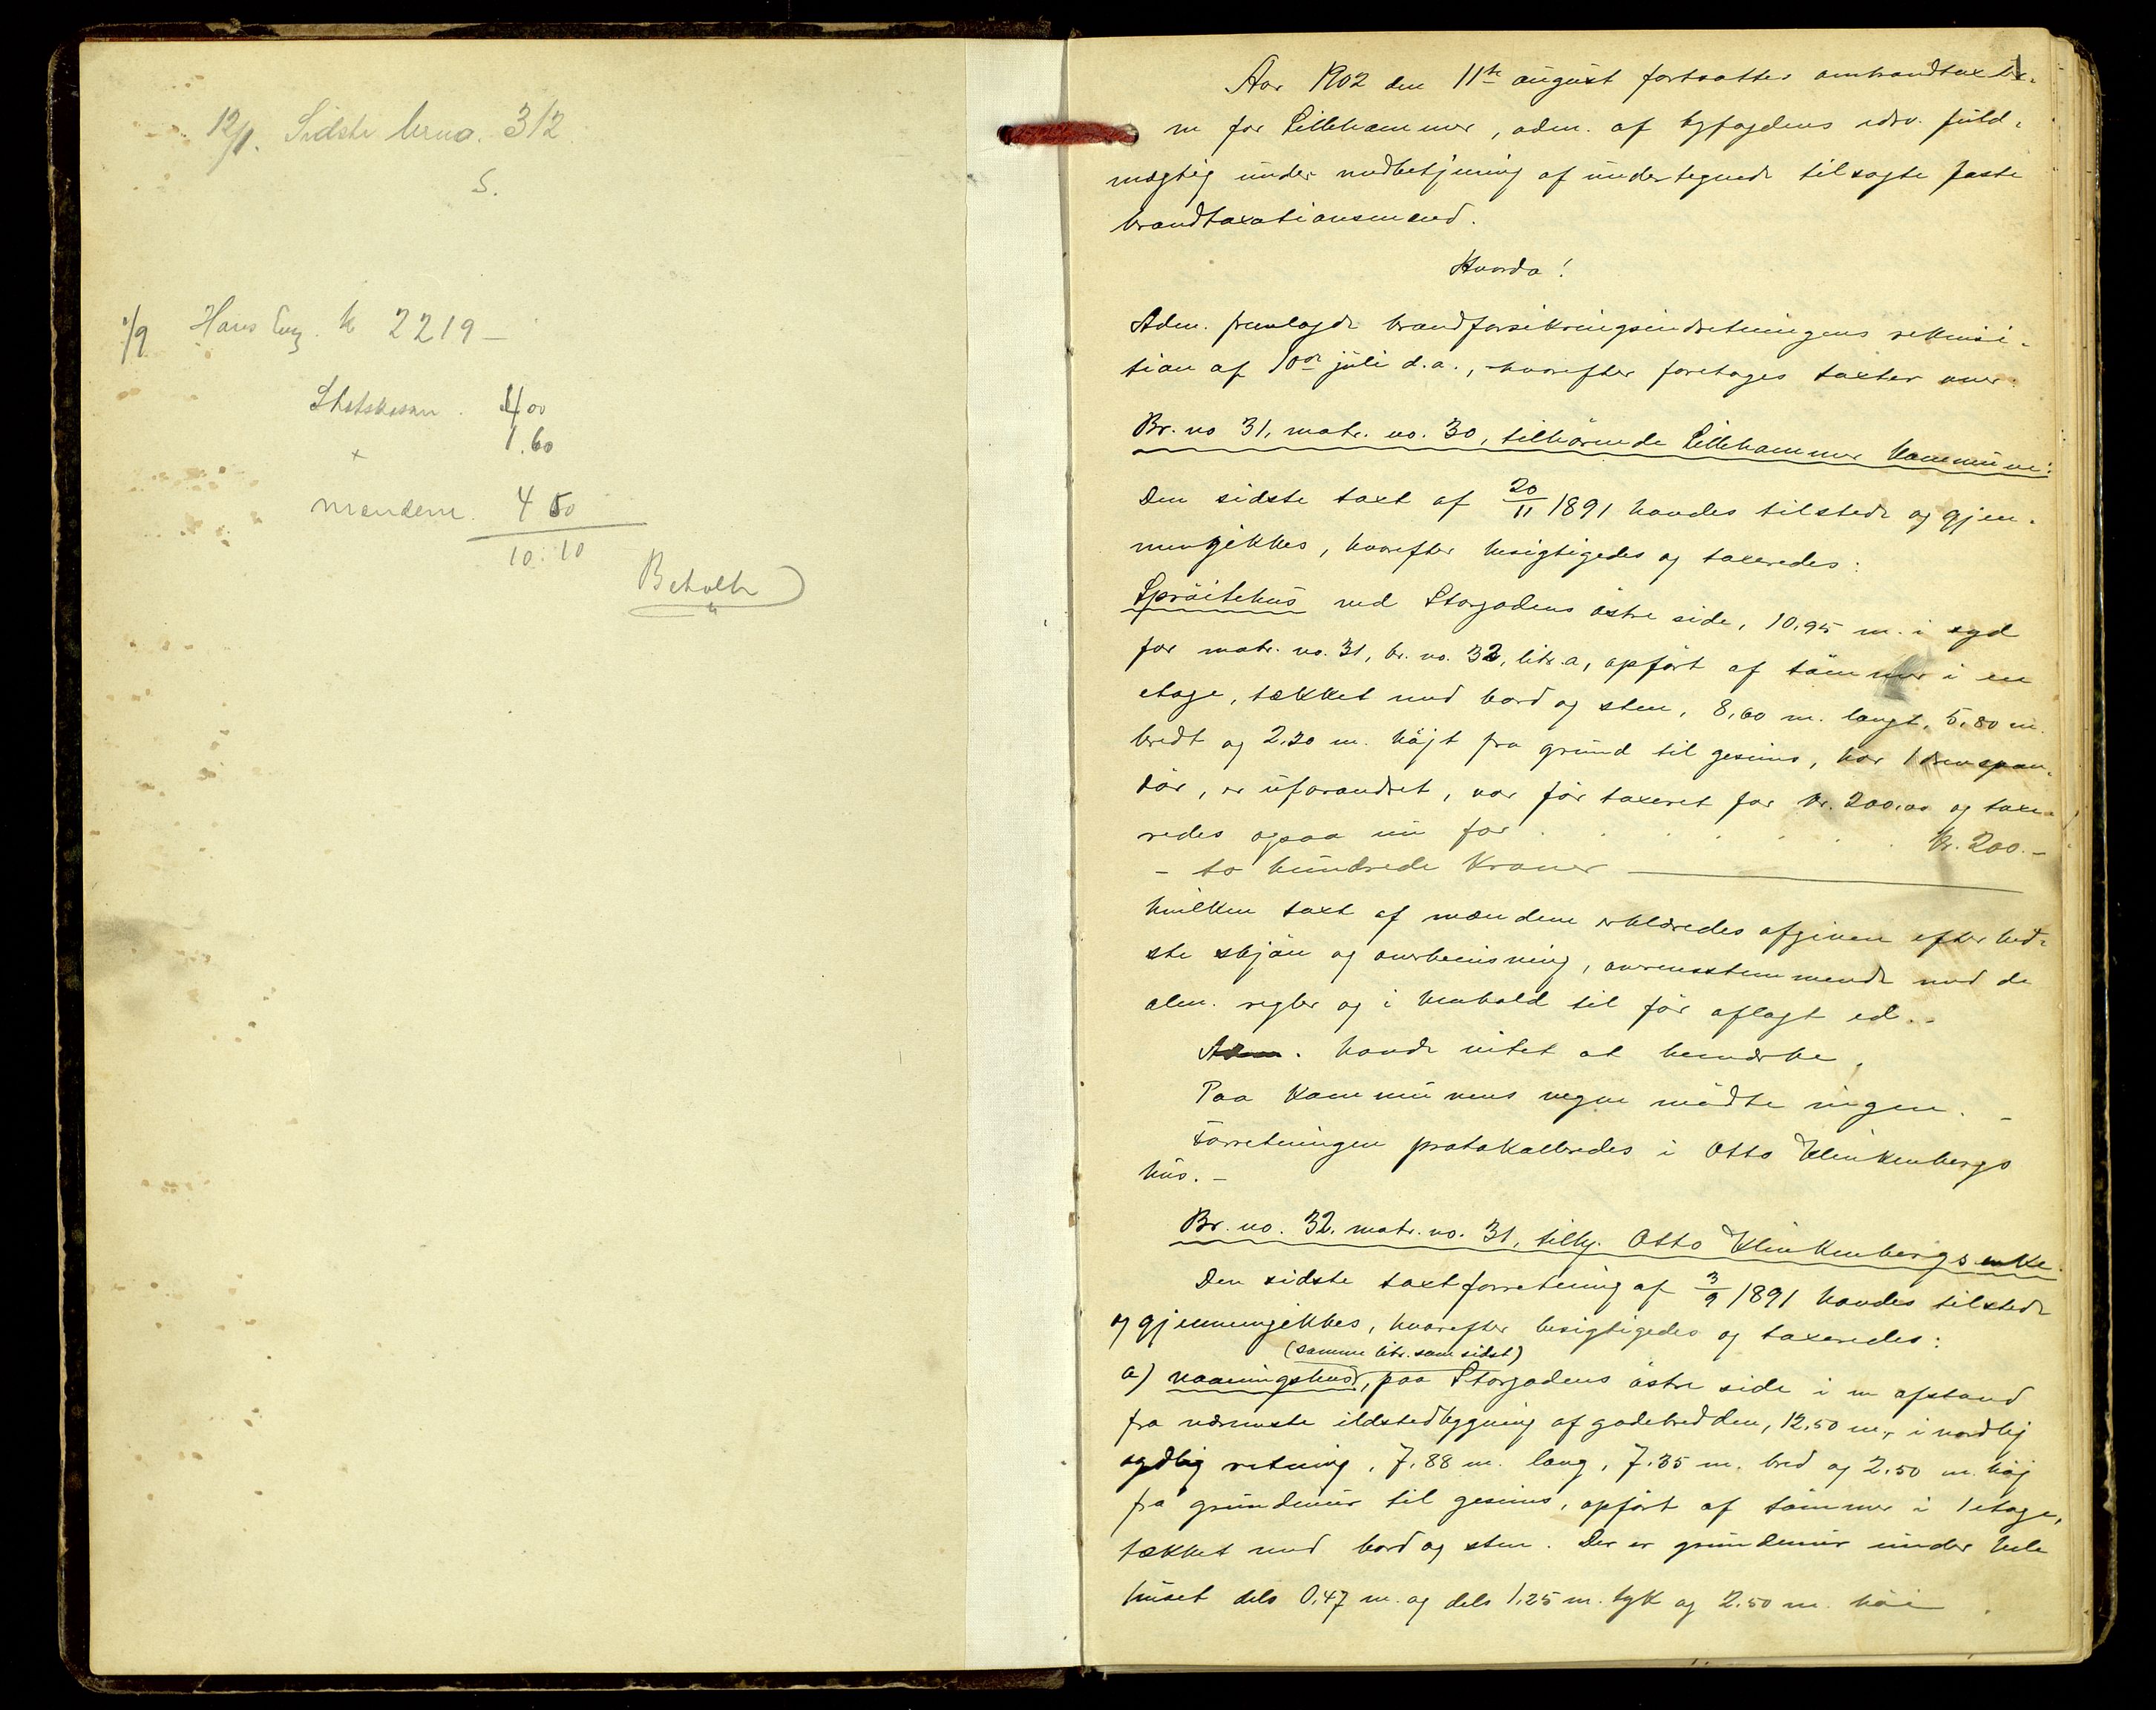 12/1. Sidste brno. 312
S.
1/9 Hans Eng. k 2219 –
Statskassen . 4 00
1.60
mændene. 4 50
10.10
Beholdt
1
Aar 1902 den 11te august fortsattes ombrandtaxter-
ne for Lillehammer, adm. af byfogdens edsv. fuld-
mægtig under medbetjening af undertegnede tilsagte faste
brandtaxationsmænd.
Hvorda!
Adm. fremlagde brandforsikringsindretningens rekvisi-
tion af 10de juli d.a., hvorefter foretages taxter over:
Br. no 31, matr. no. 30, tilhørende Lillehammer kommune:
Den sidste taxt af 20/11 1891 havdes tilstede og gjen-
nemgikkes, hvorefter besigtigedes og taxeredes:
Sprøitehus ved Storgadens østre side, 10,95 m. i syd
for matr. no. 31, br. no. 32, litr. a, opført af tømmer i en
etage, tækket med bord og sten, 8,60 m. langt, 5,80 m.
bredt og 2,20 m. højt fra grund til gesims, har 1
dør, er uforandret, var før taxeret for kr. 200,00 og taxe-
redes ogsaa nu for . . . . . . kr. 200.–
– to hundrede kroner –
hvilken taxt af mændene erklæredes afgiven efter bed-
ste skjøn og overbevisning, overensstemmende med de
alm. regler og i henhold til før aflagt ed. –
Adm. havde intet at bemærke.
Paa kommunens vegne mødte ingen. –
Forretningen protokolleredes i Otto Klinkenbergs
hus. –
Br. no. 32. matr. no. 31, tilh. Otto Klinkenbergs enke.
Den sidste taxtforretning af 3/9 1891 havdes tilstede
og gjennemgikkes, hvorefter besigtigedes og taxeredes:
(samme litr. som sidst)
a) vaaningshus, paa Storgadens østre side i en afstand
fra nærmeste ildstedbygning af gadebredden, 12,50 m, i nordlig
sydlig retning, 7,88 m. lang, 7,35 m. bred og 2,50 m. høj
fra grundmur til gesims, opført af tømmer i 1 etage,
tækket med bord og sten. Der er grundmur under hele
huset dels 0,47 m. og dels 1,25 m. tyk og 2,50 m. høi